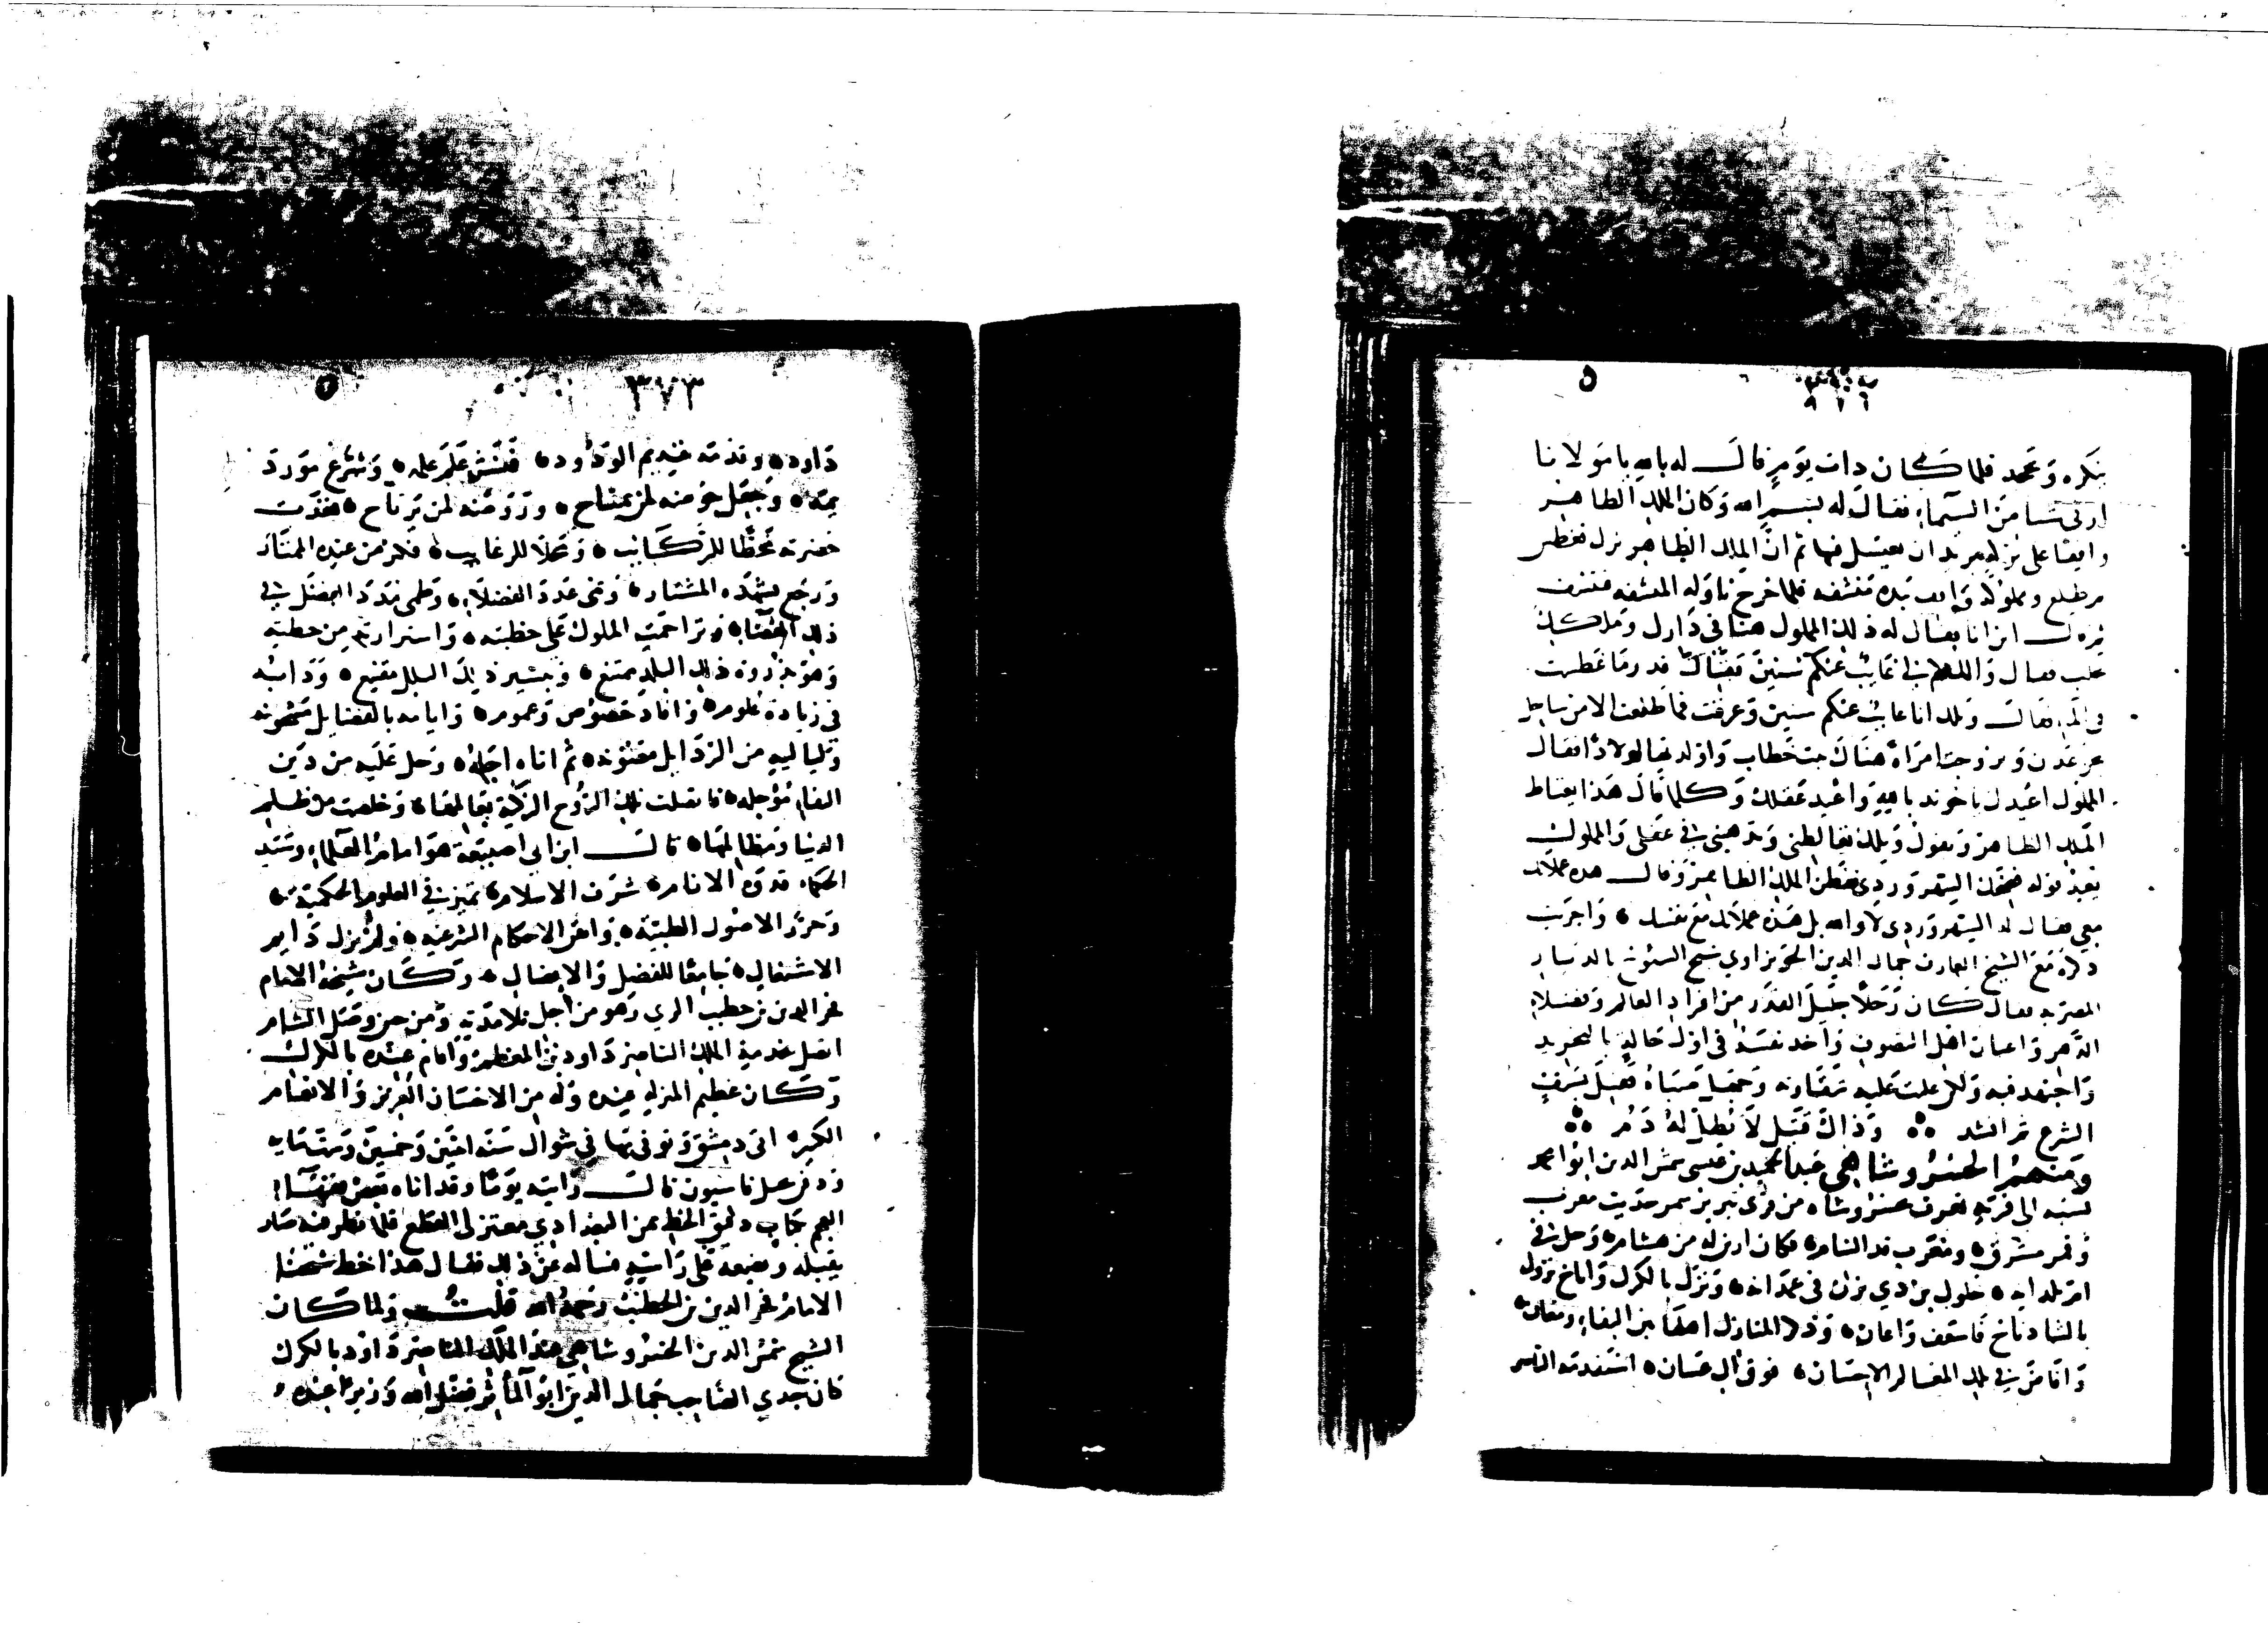 ينكره ويجحد فلما كان ذات يوم قال له بالله يا مولانا
ارني شيا من السيميا فقال له بسم الله وكان الملك الظاهر
واقفا على بركة يريد ان يغتسل فيها ثم ان الملك الظاهر نزل فغطس
ثم طلع ومملوكه واقف بيده منشفة فلما خرج ناوله المنشفة فتنشف
ثم قال اين انا فقال له ذلك المملوك هنا في دارك وملكك
حلب فقال والله لي غايب عنكم سنين فقال قد وما غطست
في الماء فقال ويلك انا غايب عنكم سنين وغرقت فما طلعت الا من ساحل
بحر عدن وتزوجت امراة هناك بنت خطاب واولدتها اولادا فقال
المملوك اعيذك يا خوند بالله واعيذ عقلك وكلما قال هذا يغتاظ
الملك الظاهر ويقول ويلك تغالطني وتذهبني في عقلي والمملوك
يعيد قوله فضحك السهروردي ففطن الملك الظاهر وقال هذه عملاتك
معي فقال له السهروردي لا والله بل هذه عملاتك مع نفسك واجريت
ذكره مع الشيخ العارف جمال الدين الحويزاوي شيخ الشيوخ بالديار
المصرية فقال كان رجلا جليل القدر من افراد العالم وفضلاء
الدهر واعيان اهل التصوف واخذ نفسه في اول حاله بالتجريد
واجتهد فيه ولكن غلبت عليه شقاوته وحمقا صباه فقتل بسيف
الشرع ثم انشد وذاك قتيل لا يطل له دم
ومنهم الخسروشاهي عبد الحميد بن عيسى شمس الدين ابو محمد
نسبه الى قرية تعرف بخسروشاه من قرى تبريز سمر حديث مغرب
وقمر مشرق ومغرب قد الشام فكان ارق له من هشام وحل في
بالشاد ناخ فاسعف واعان وذكر المنازل اهلها بين البقاء ومعان
واقام في تلك المغاني الاحسان فوق ال غسان استقدمه الناصر
٣٧٣
داود وقدمه خديم الودود فنشر علم علمه وشرع مورد
يمه وجعل حوضه لمن يمتاح وروضه لمن يرتاح فغدت
حضرته محطا للركايب ومحلا للرغايب فكثر من عنده الممتار
ورجع بشهده المشتار ونمى عدد الفضلاء وطمى مدد الفضل في
ذلك الفضاء وتزاحمت الملوك على خطبته واستزارته من خطته
وهو بذروة ذلك البلد ممتنع وبتيسير ذلك البلل مقتنع ودابه
في زيادة علوم وافاد خصوص وعموم وايامه بالفضايل مشحونه
ولياليه من الرذايل مصونه ثم اتاه اجله وحل عليه من دين
الفناء مؤجله فانتقلت تلك الروح الزكية بقا لمقاه وخلصت من ظلم
الدنيا ومظالمها قال ابن ابي اصيبعة هو امام العلماء وسيد
الحكماء قدوة الانام شرف الاسلام تميز في العلوم الحكمية
وحرر الاصول الطبية واتقن الاحكام الشرعية ولم يزل دايم
الاشتغال جامعا للفضل والافضال وكان شيخه الامام
فخر الدين بن خطيب الري وهو من اجل تلامذته ومن حين وصل الشام
اتصل بخدمة الملك الناصر داود بن المعظم واقام عنده بالكرك
وكان عظيم المنزلة عنده وله من الاحسان الغزير والانعام
الكثير اتى دمشق وتوفي بها في شوال سنة اثنين وخمسين وستمايه
ودفن بجبل قاسيون قال رايته يوما وقد اتاه بعض فقهاء
العجم بكتاب دقيق الخط ثمن البغدادي معتزلي القطع فلما نظر فيه صار
يقبله ويضعه على راسه فساله عن ذلك فقال هذا خط شيخنا
الامام فخر الدين بن الخطيب رحمه الله قلت ولما كان
الشيخ شمس الدين الخسروشاهي عند الملك الناصر داود بالكرك
كان جدي الصاحب جمال الدين ابو المآثر فضل الله وزيرا عنده